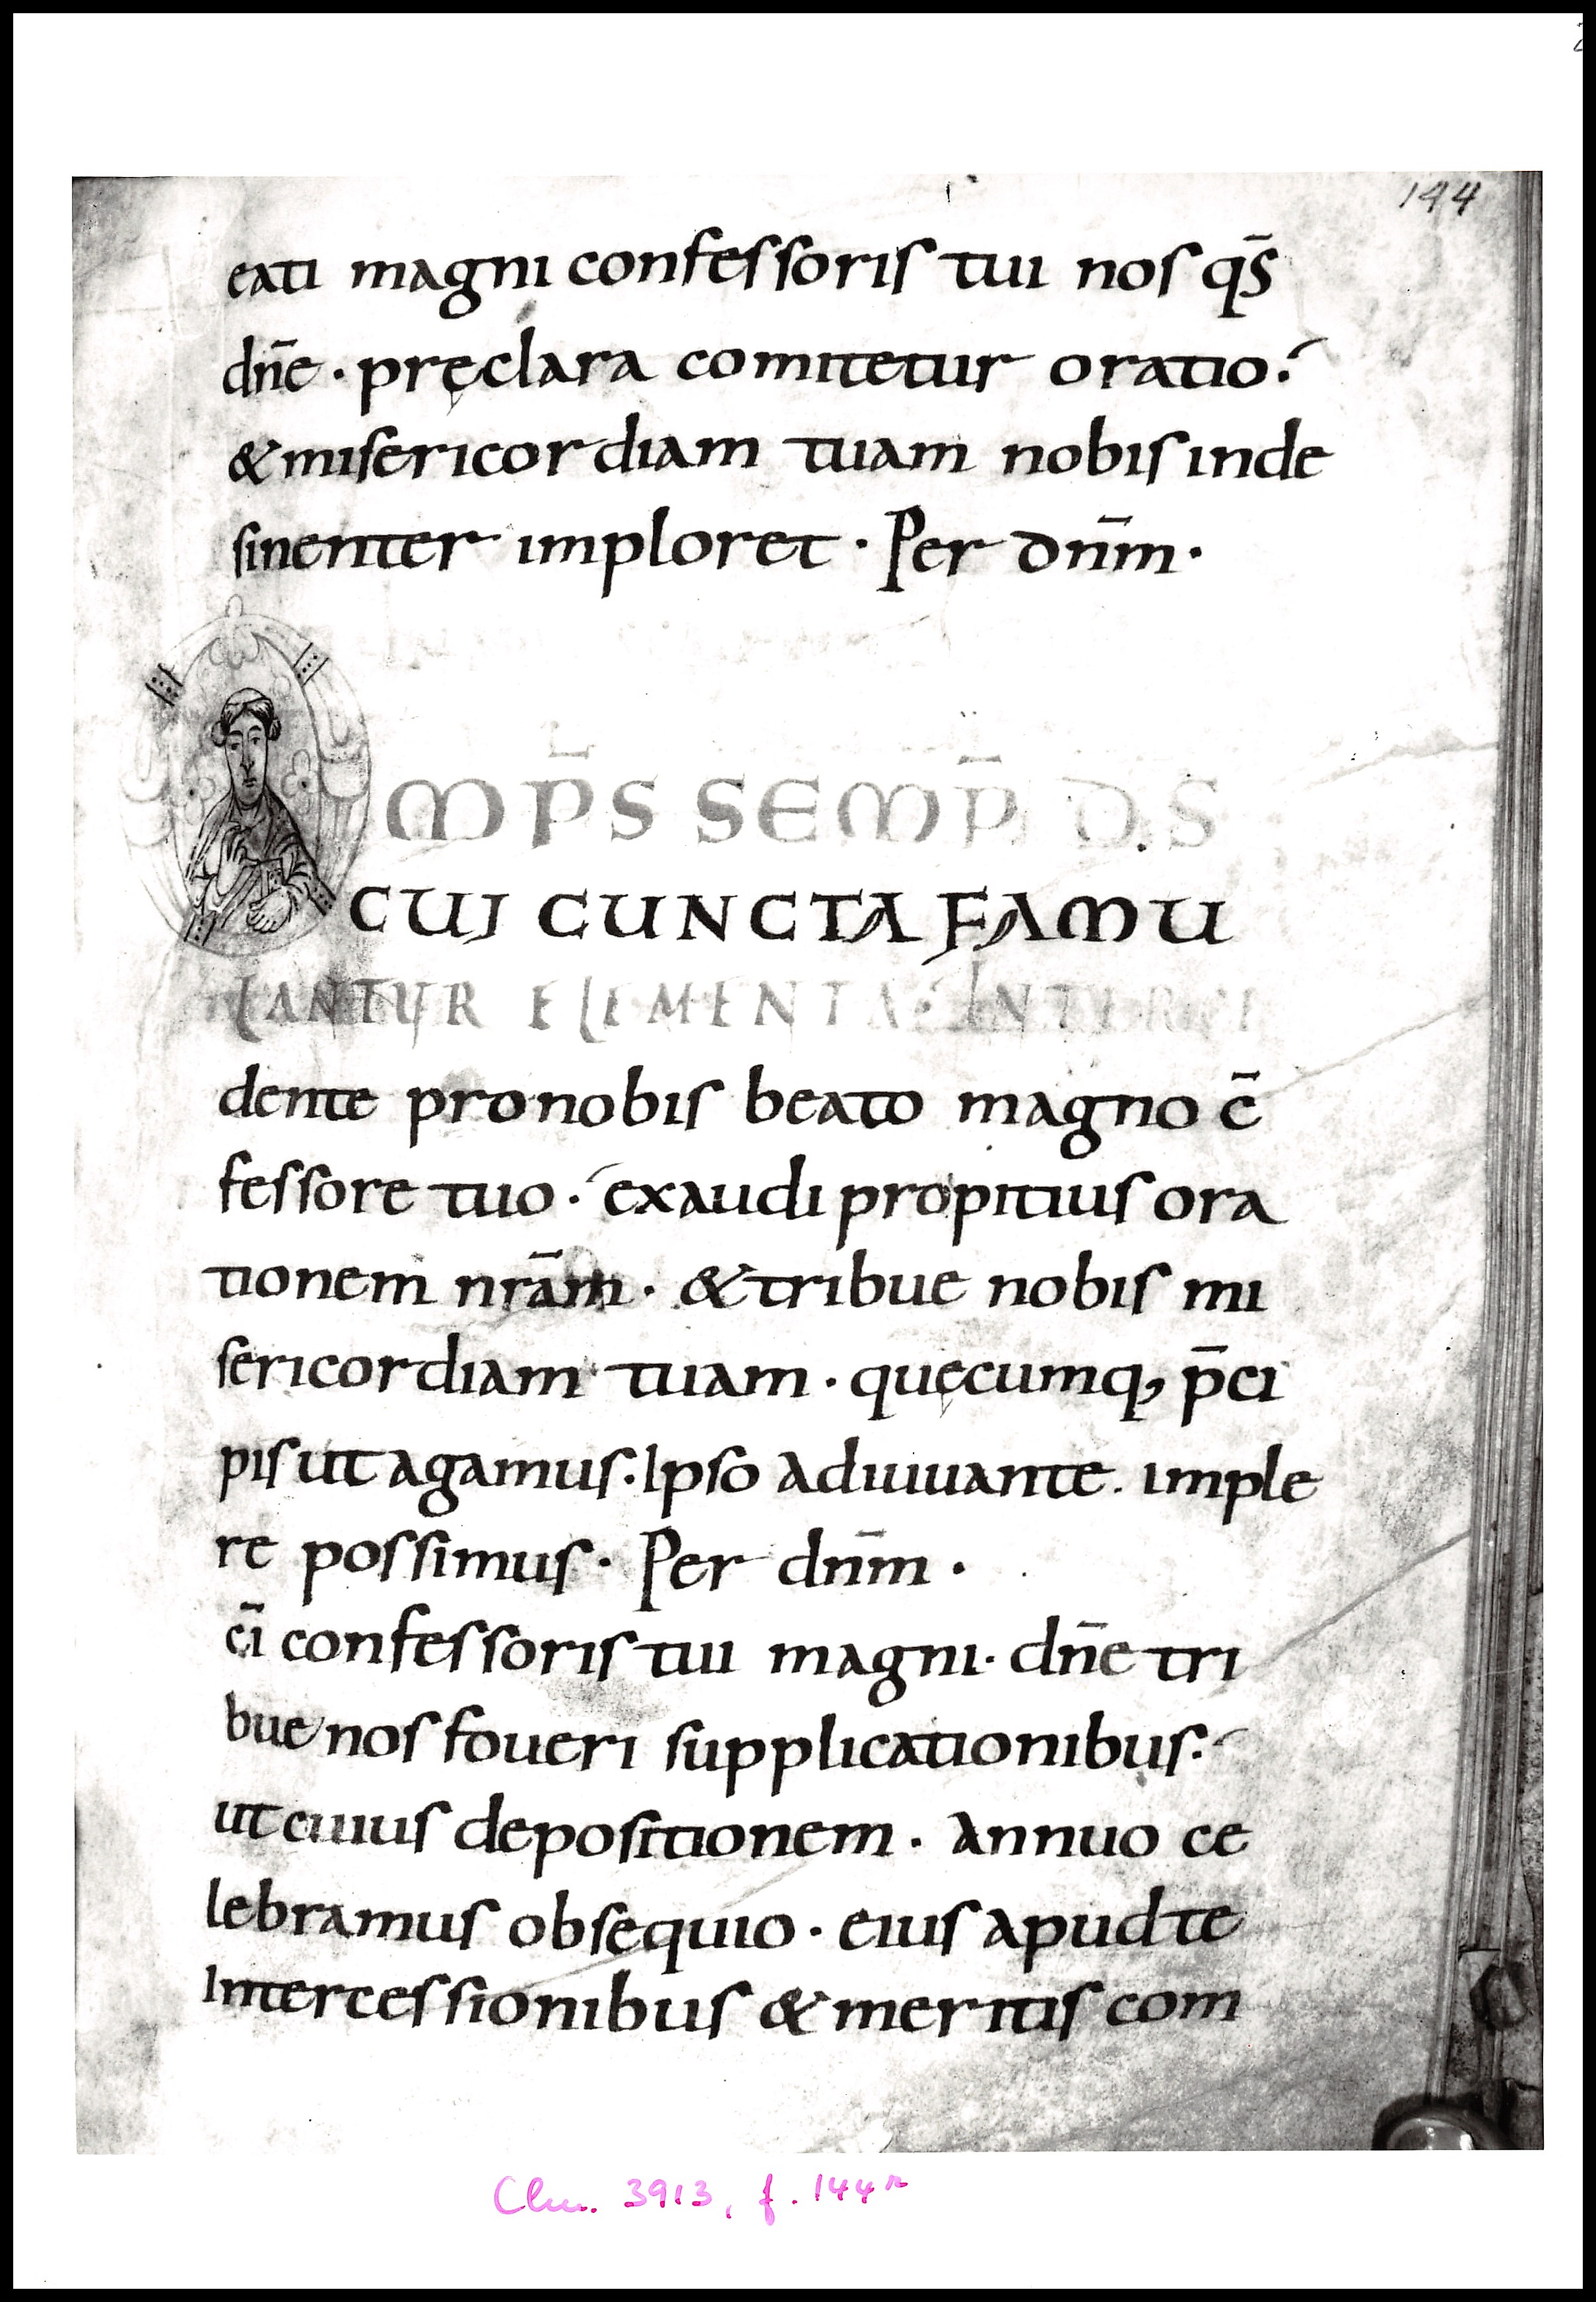 144
eati magni confessoris tui nos qs̄
dn̄e · pręclara comitetur oratio:
& misericordiam tuam nobis inde
sinenter imploret · Per dn̄m ·
OMP̄S SEMP̄ D̄S
CUI CUNCTA FAMU
LANTUR ELEMENTA: INTERCE
dente pro nobis beato magno c̄
fessore tuo · exaudi propitius ora
tionem nr̄am · & tribue nobis mi
sericordiam tuam · quęcumq, p̄ci
pis ut agamus · Ipso adiuuante . imple
re possimus · Per dn̄m ·
c̄i confessoris tui magni · dn̄e tri
bue nos foueri supplicationibus:
ut cuius depositionem · annuo ce
lebramus obsequio · eius apud te
Intercessionibus & meritis com
Clm. 3913, f. 144r